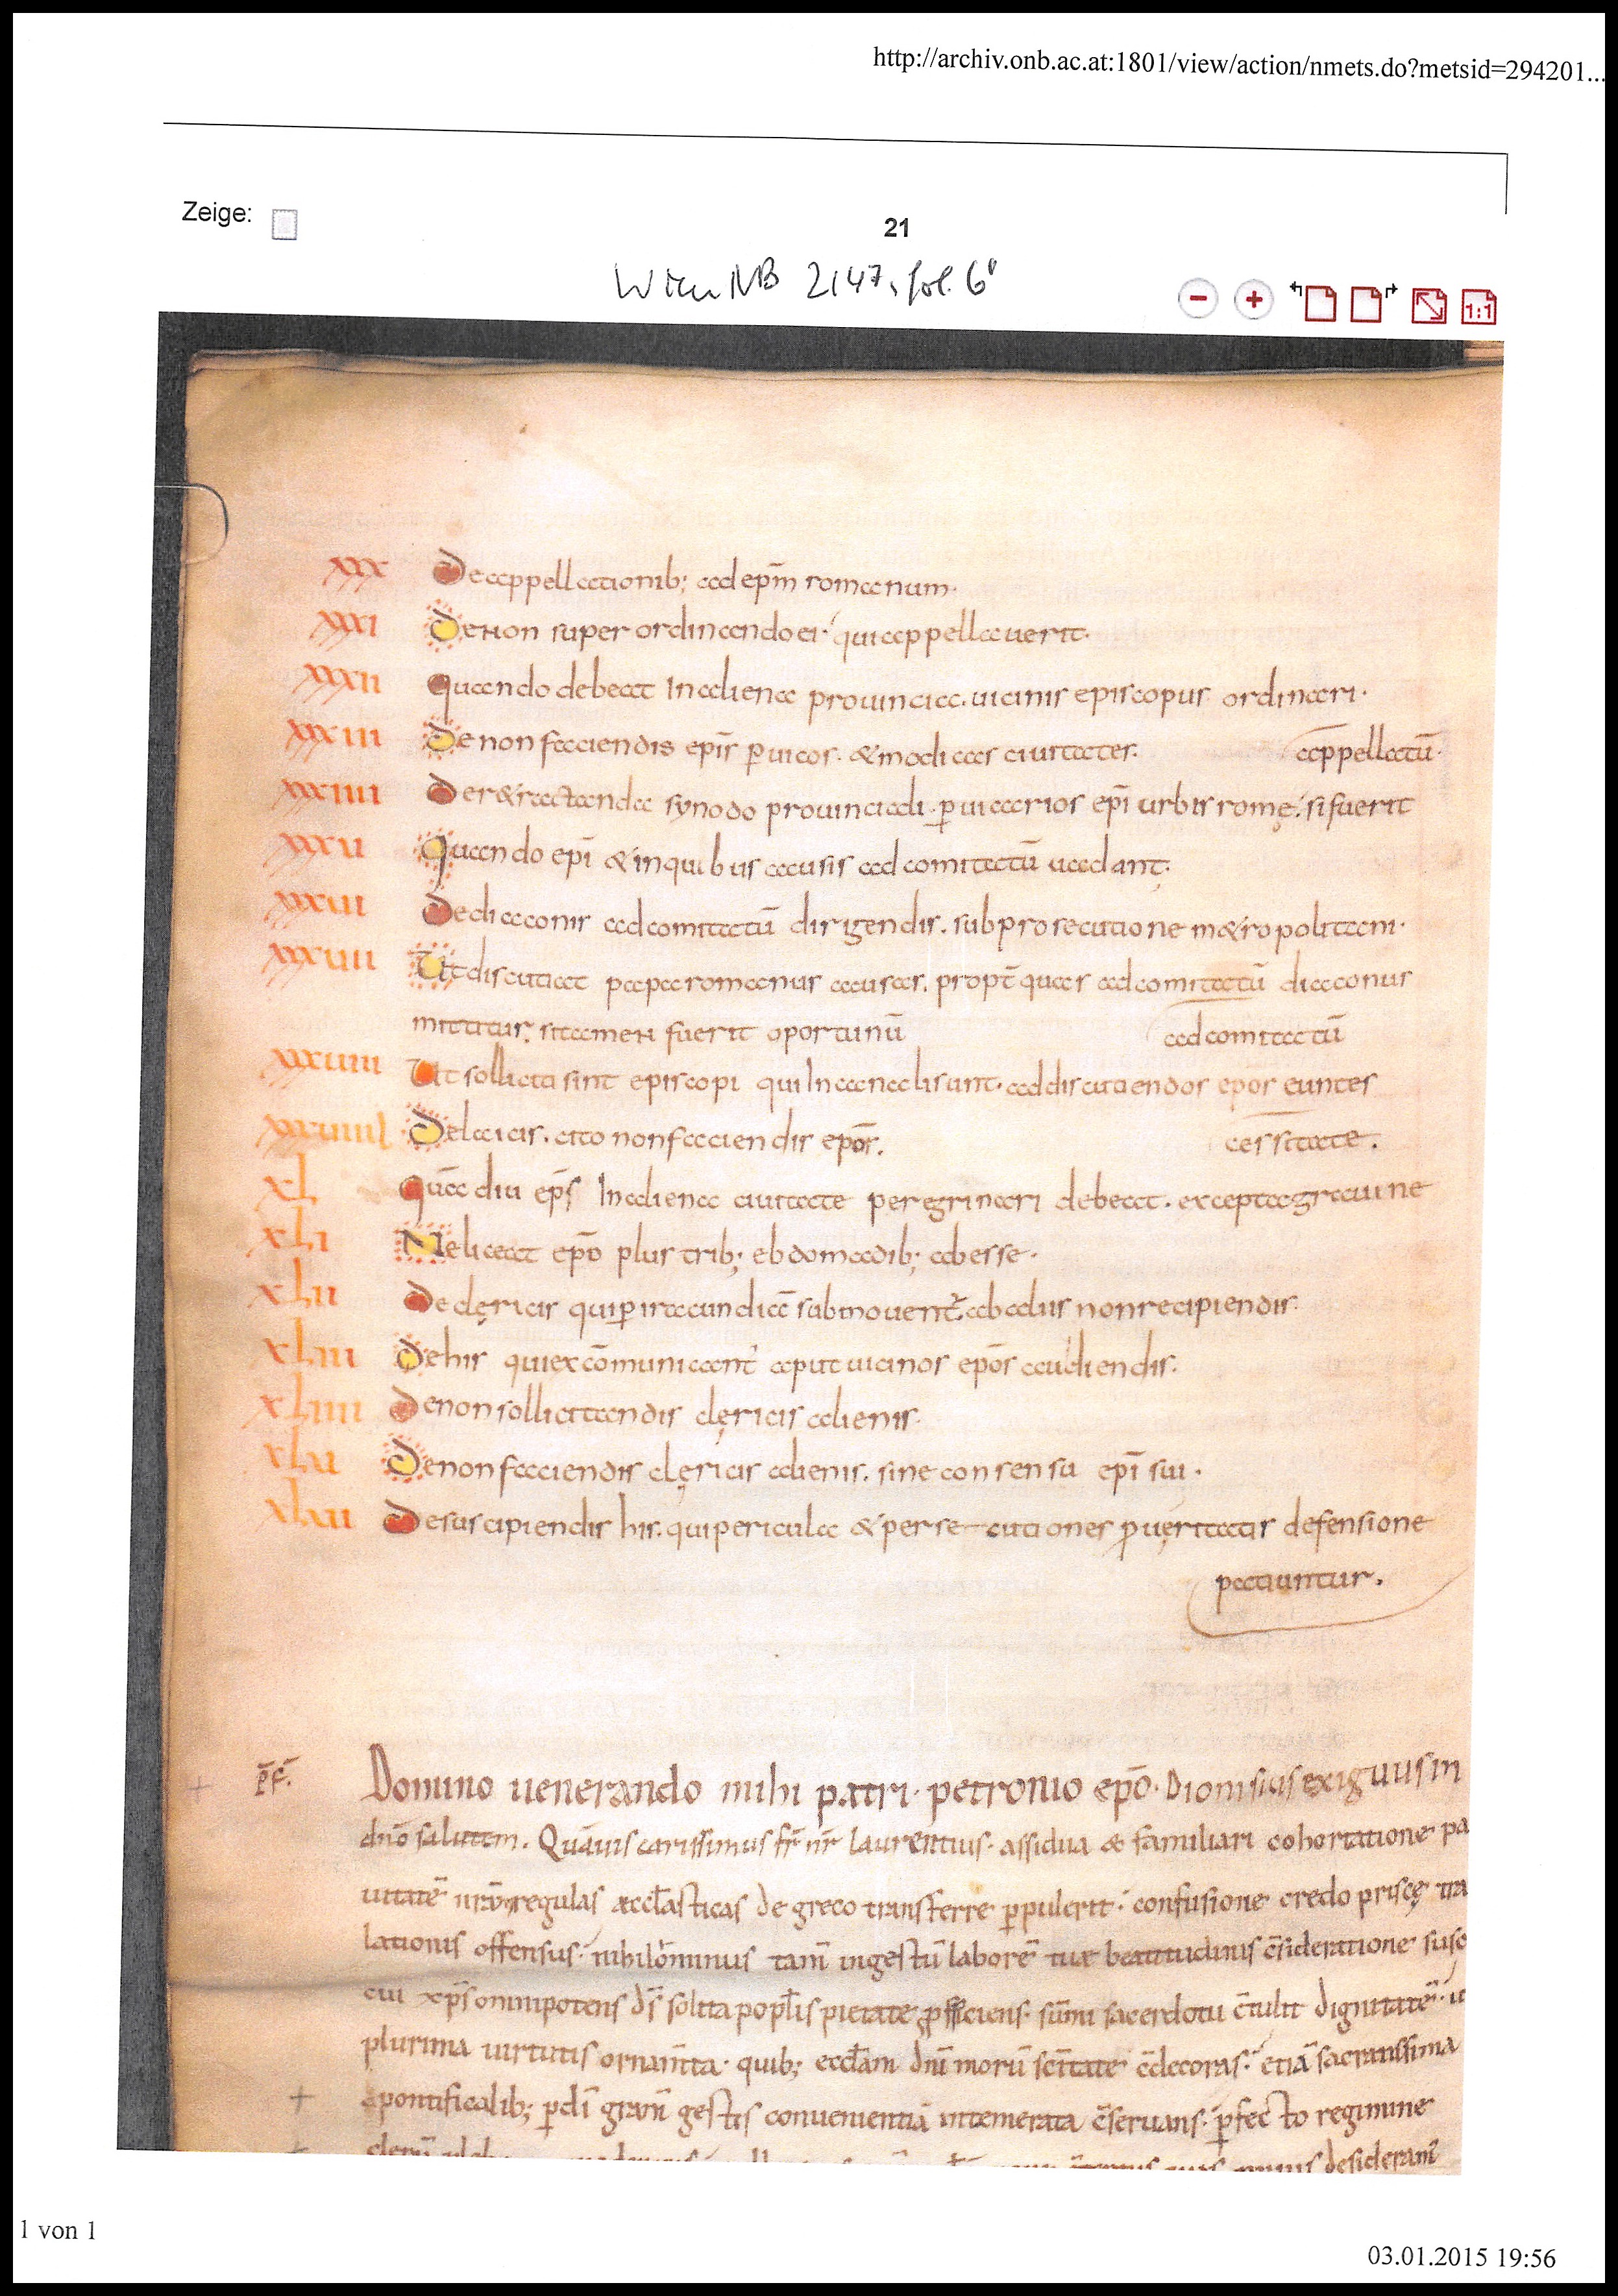 http://archiv.onb.ac.at:1801/view/action/nmets.do?metsid=294201...
Zeige:
21
Wien NB 2147, fol. 6v
XXX De appellationib; ad epm̄ romanum.
XXXI De non super ordinando ei. qui appellauerit.
XXXII Quando debeat In aliena prouincia. uicinis episcopus ordinari.
XXXIII De non faciendis epīs p uicos. & modicas ciuitates. appellatū.
XXXIIII De r&ractanda synodo prouinciali. p uicarios epī urbis romę. si fuerit
XXXV Quando epī & in quibus causis ad comitatū uadant.
XXXVI De diaconis ad comitatū dirigendis. sub prosecutione m&ropolitani.
XXXVII Ut discutiat papa romanus causas. propt̄ quas ad comitatū diaconus
mittitur. si tamen fuerit oportunū ad comitatū
XXXVIII Ut solliciti sint episcopi qui In canali sunt. ad discutiendos epos euntes
XXXVIIII De laicis. cito non faciendis epōs.
cessitate.
XL Quādiu epī̄s In aliena ciuitate peregrinari debeat. excepta graui ne
XLI Ne liceat epō plus trib; ebdomadib; abesse.
XLII De clęricis qui p iracundiā submouent̄. ab aliis non recipiendis.
XLIII De his qui excōmunicant̄ aput uicinos epōs audiendis.
XLIIII De non sollicitandis clęricis alienis.
XLV De non faciendis clęricis alienis. sine consensu epī sui.
XLVI De suscipiendis his. qui pericula & persecutiones p uęritatis defensione
patiuntur.
P̄F̄. Domino uenerando mihi patri. petronio epō. Dionisius exiguus in
dn̄o salutem. Quāuis carissimus fr̄ nr̄ laurentius. assidua & familiari cohortatione pa
uitatē nr̄am regulas æccl̄asticas de greco transferre ppulerit. confusione credo priscę tra
lationis offensus. nihilōminus tam̄ ingestū laborē tuæ beatitudinis c̄sideratione susc
cui xp̄s omnipotens ds̄ solita popl̄is pietate pspiciens. sūmi sacerdotii c̄tulit dignitatē. u
plurima uirtutis ornam̄ta. quib; eccl̄am dn̄i morū sc̄itate c̄decoras. etiā sacratissima
pontificalib; p dī gr̄am gestis conuenientiā intemerata c̄seruans. pfecto regimine
1 von 1
03.01.2015 19:56